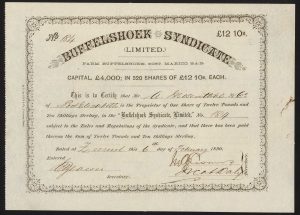 No 184 £12 10s.
BUFFELSHOEK SYNDICATE
(LIMITED.)
FARM BUFFELSHOEK, DIST. MARICO, S.A.R.
CAPITAL £4,000; IN 320 SHARES OF £12 10s. EACH.
This is to Certify that Mr.
of is the Proprietor of One Share of Twelve Pounds and
Ten Shillings Sterling, in the "Buffelshoek Syndicate, Limited," No. 184
subject to the Rules and Regulations of the Syndicate; and that there has been paid
thereon the Sum of Twelve Pounds and Ten Shillings Sterling.
Dated at Zeerust this 6th of February 1890.
Entered
Secretary.